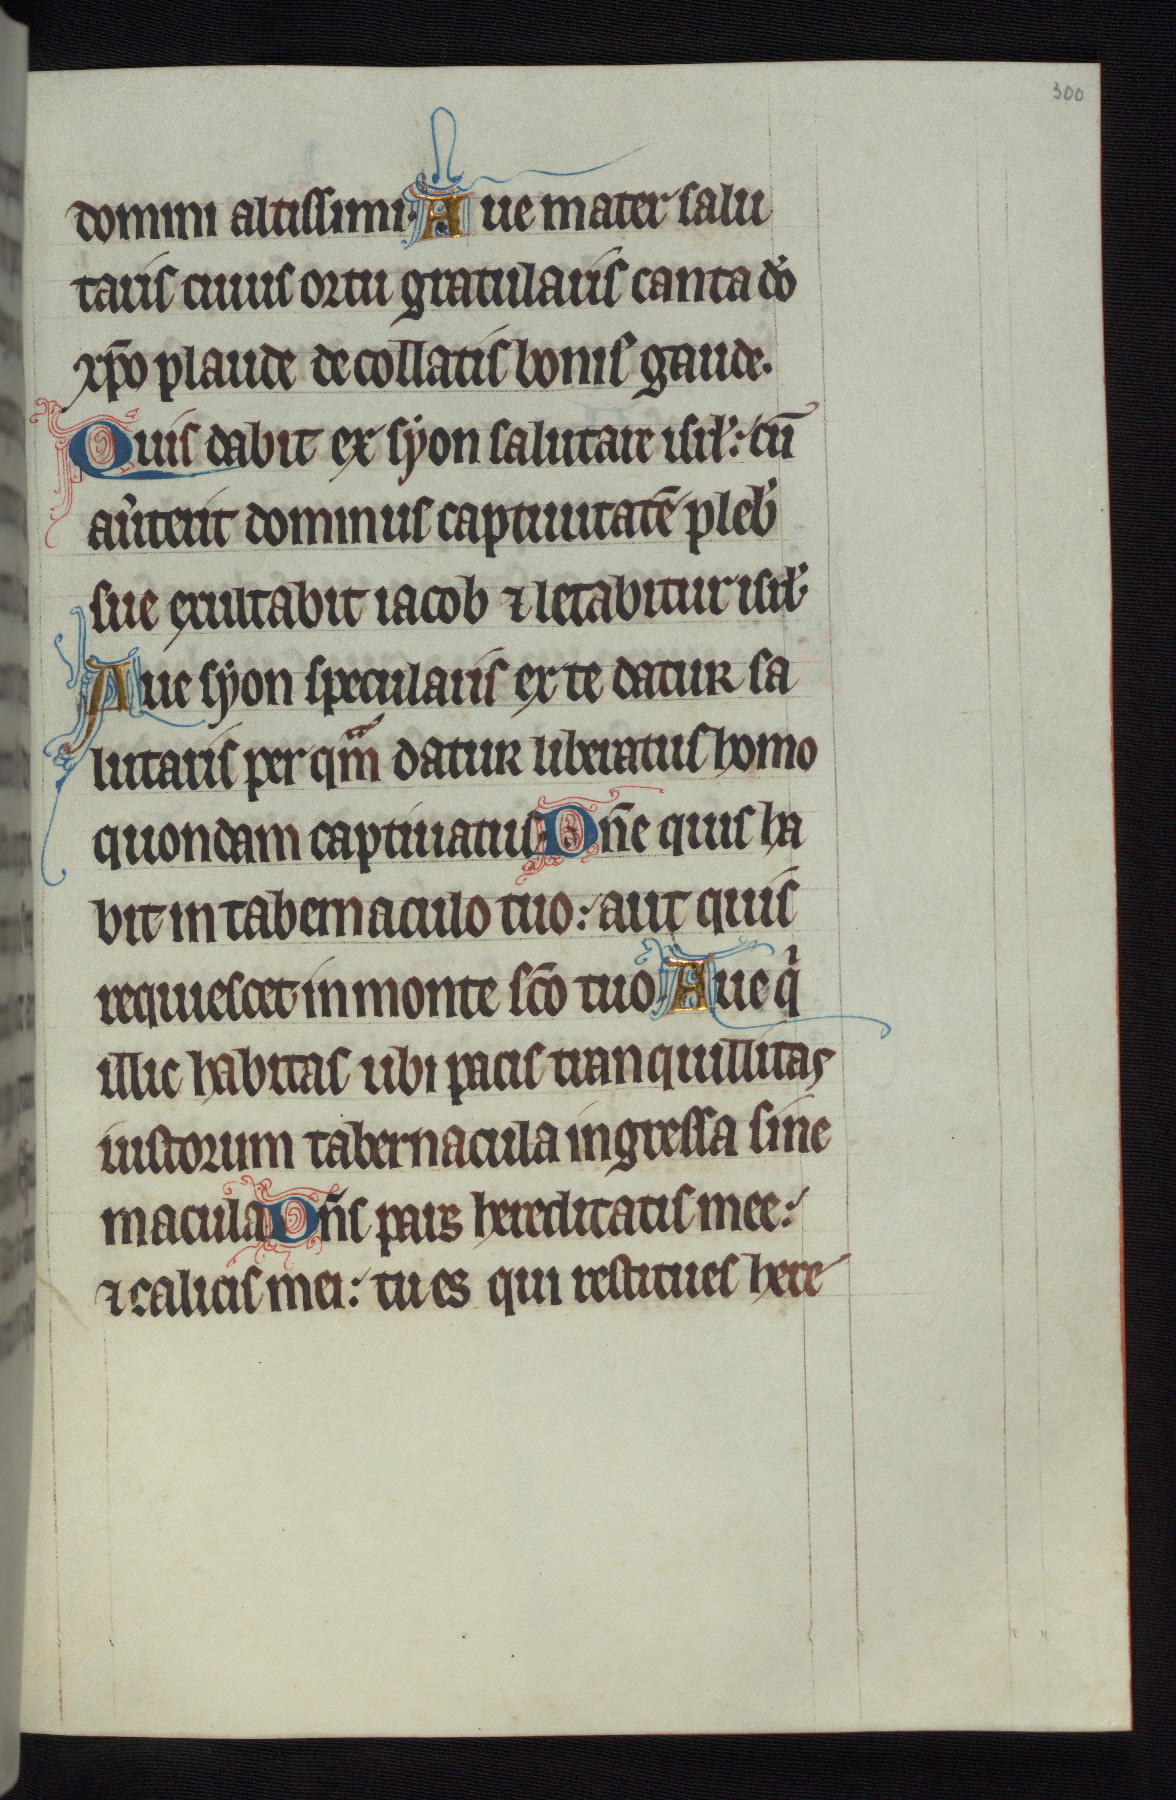 300
domini altissimi. Aue mater salu
taris cuius ortu gratularis canta do
xp̄o plaude de collatis bonis gaude.
Quis dabit ex syon salutare isrl̓: cū
au̓terit dominus captiuitatē pleb̓
sue exultabit iacob ⁊ letabitur isrl̓
Aue syon specularis ex te datur sa
lutaris per qm̄ datur liberatus homo
quondam captiuatus. Dn̄e quis ha
bit in tabernaculo tuo: aut quis
requiescet in monte sc̄o tuo. Aue qͥ
illic habitas ubi pacis tranquillitas
iustorum tabernacula ingressa sine
macula Dn̄s pars hereditatis mee:
⁊ calicis mei: tu es qui restitues here